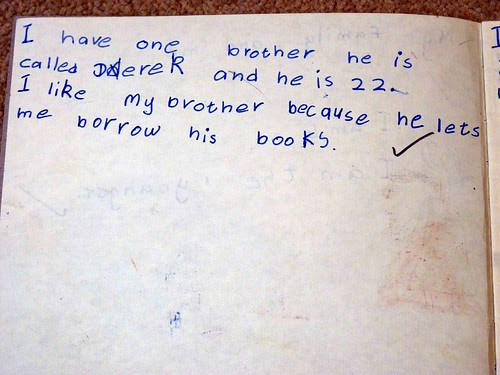 I have one brother he is
called Derek and he is 22.
I like my brother because he lets
me borrow his books.